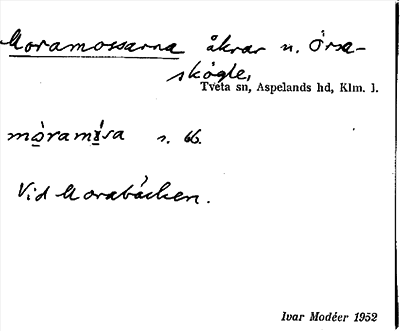 Moramossarna åkrar n. Örsa-
skögle,
Tveta sn, Aspelands hd, Klm. l.
s. 66.
Vid Morabäcken.
Ivar Modéer 1952